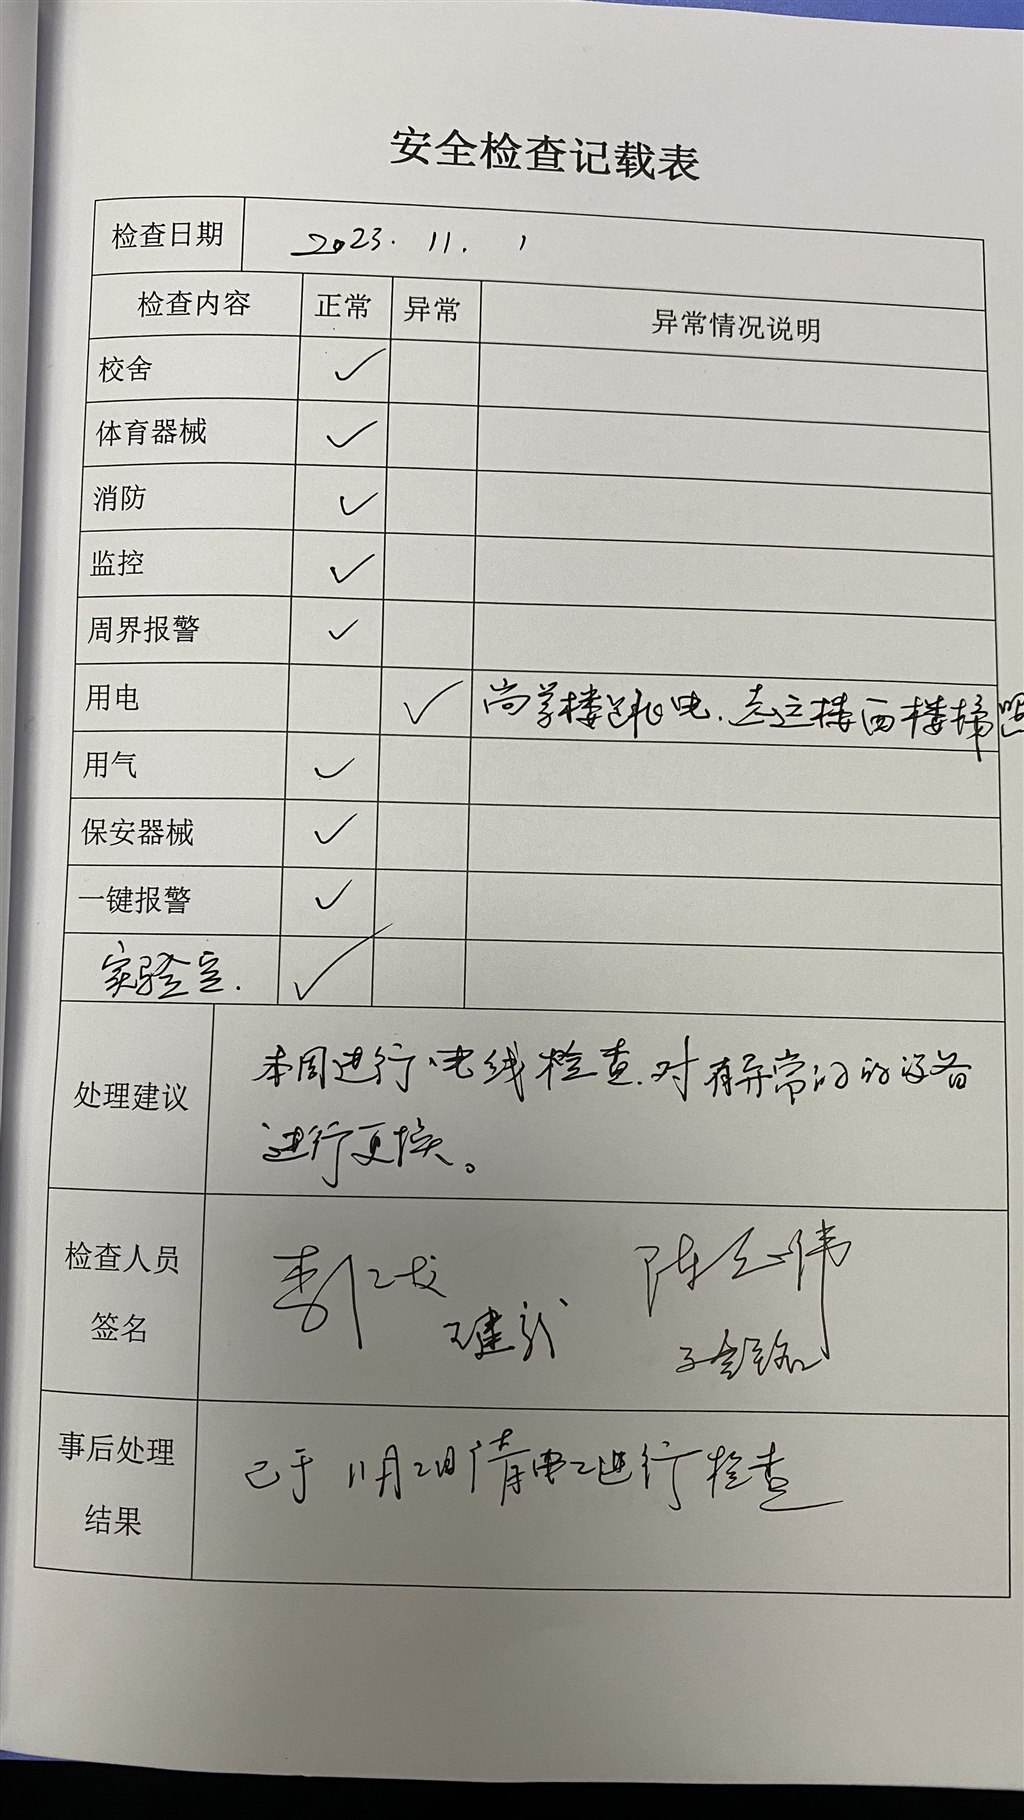 安全检查记载表
检查日期 2023. 11. 1
检查内容 正常 异常 异常情况说明
校舍 ✓
体育器械 ✓
消防 ✓
监控 ✓
周界报警 ✓
用电 ✓ 尚学楼 电. 志立楼西楼梯照
用气 ✓
保安器械 ✓
一键报警 ✓
实验室. ✓
处理建议 本周进行电线检查.对有异常的的设备
进行更换。
检查人员
签名
陈志伟
王建新
事后处理 已于11月2日请电工进行检查
结果